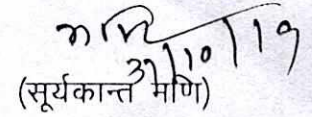 31/10/19
(सूर्यकान्त मणि)